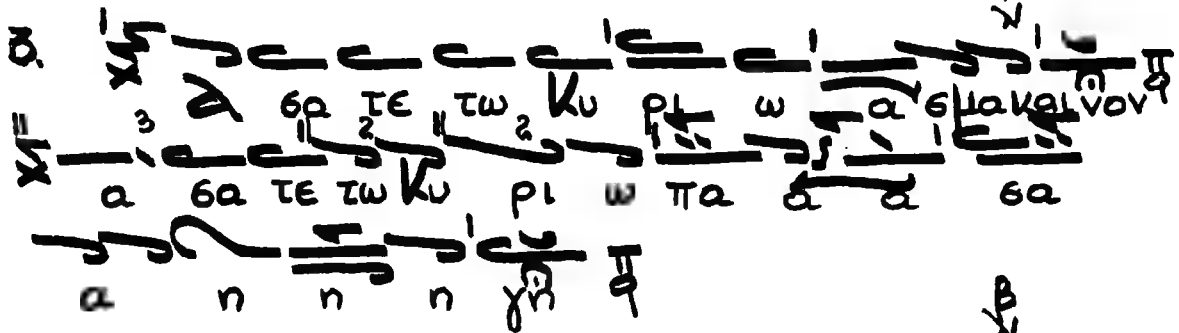 3. Α σα τε τω Κυ ρι ω α σμα και νον
α σα τε τω Κυ ρι ω πα α α σα
α η η η γη